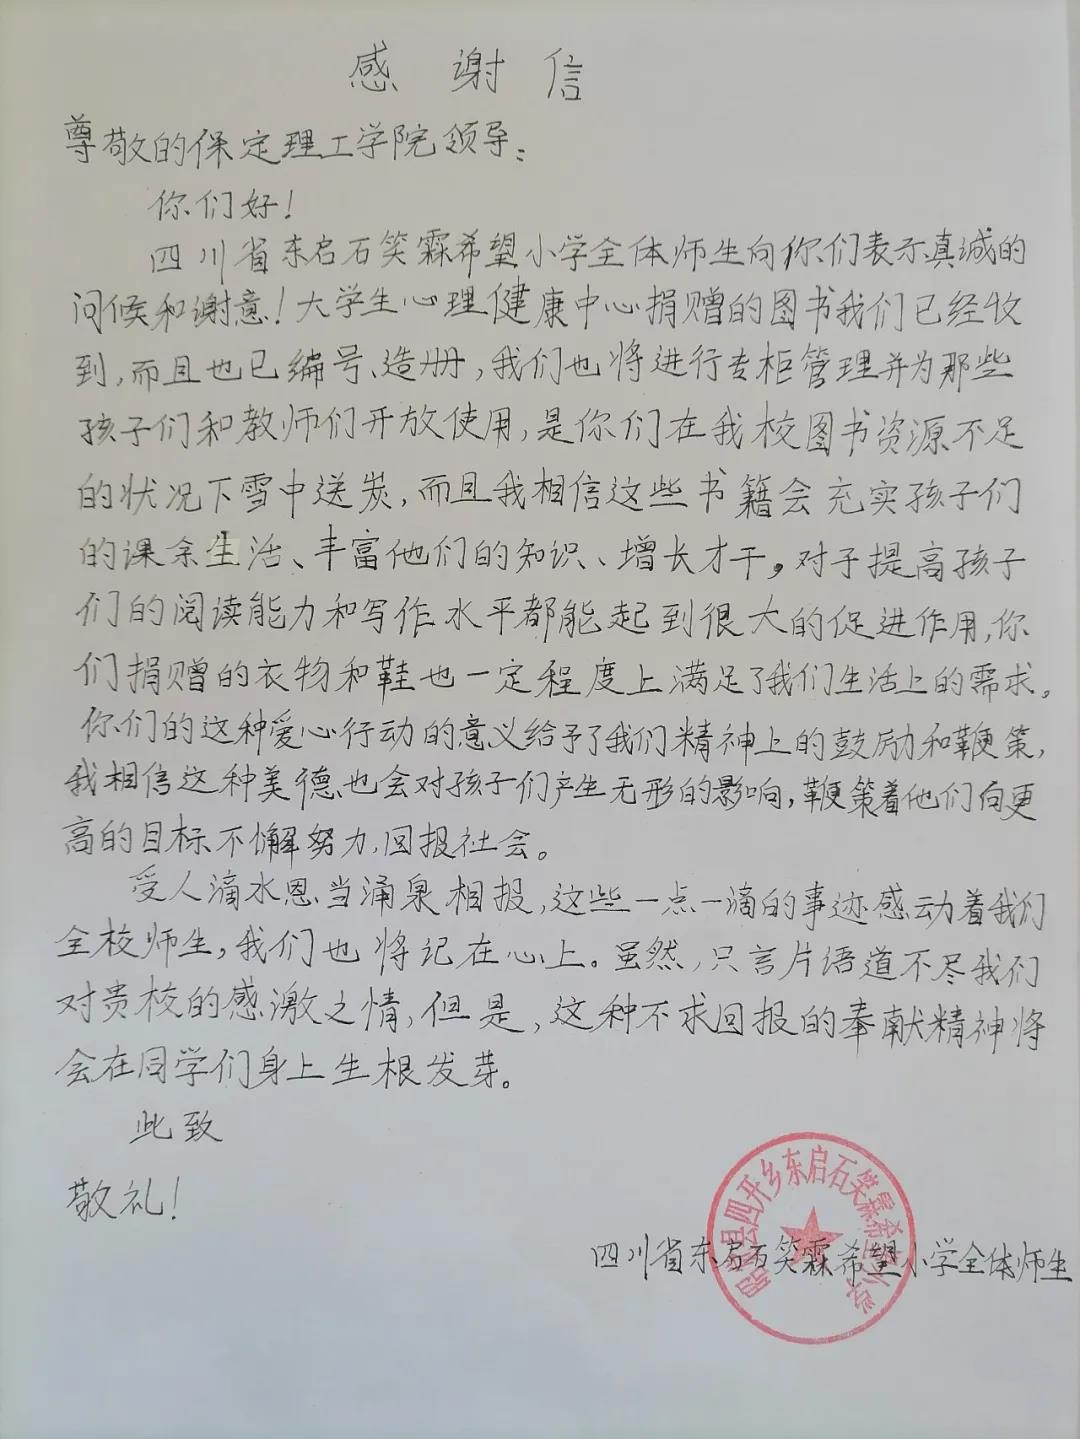 感谢信
尊敬的保定理工学院领导：
你们好！
四川省东启石笑霖希望小学全体师生向你们表示真诚的
问候和谢意！大学生心理健康中心捐赠的图书我们已经收
到，而且也已编号、造册，我们也将进行专柜管理并为那些
孩子们和教师们开放使用，是你们在我校图书资源不足
的状况下雪中送炭，而且我相信这些书籍会充实孩子们
的课余生活、丰富他们的知识、增长才干。对于提高孩子
们的阅读能力和写作水平都能起到很大的促进作用，你
们捐赠的衣物和鞋也一定程度上满足了我们生活上的需求。
你们的这种爱心行动的意义给予了我们精神上的鼓励和鞭策，
我相信这种美德也会对孩子们产生无形的影响，鞭策着他们向更
高的目标不懈努力，回报社会。
受人滴水恩当涌泉相报，这些一点一滴的事迹感动着我们
全校师生，我们也将记在心上。虽然，只言片语道不尽我们
对贵校的感激之情，但是，这种不求回报的奉献精神将
会在同学们身上生根发芽。
此致
敬礼！
四川省东启石笑霖希望小学全体师生
昭觉县四开乡东启石笑霖希望小学